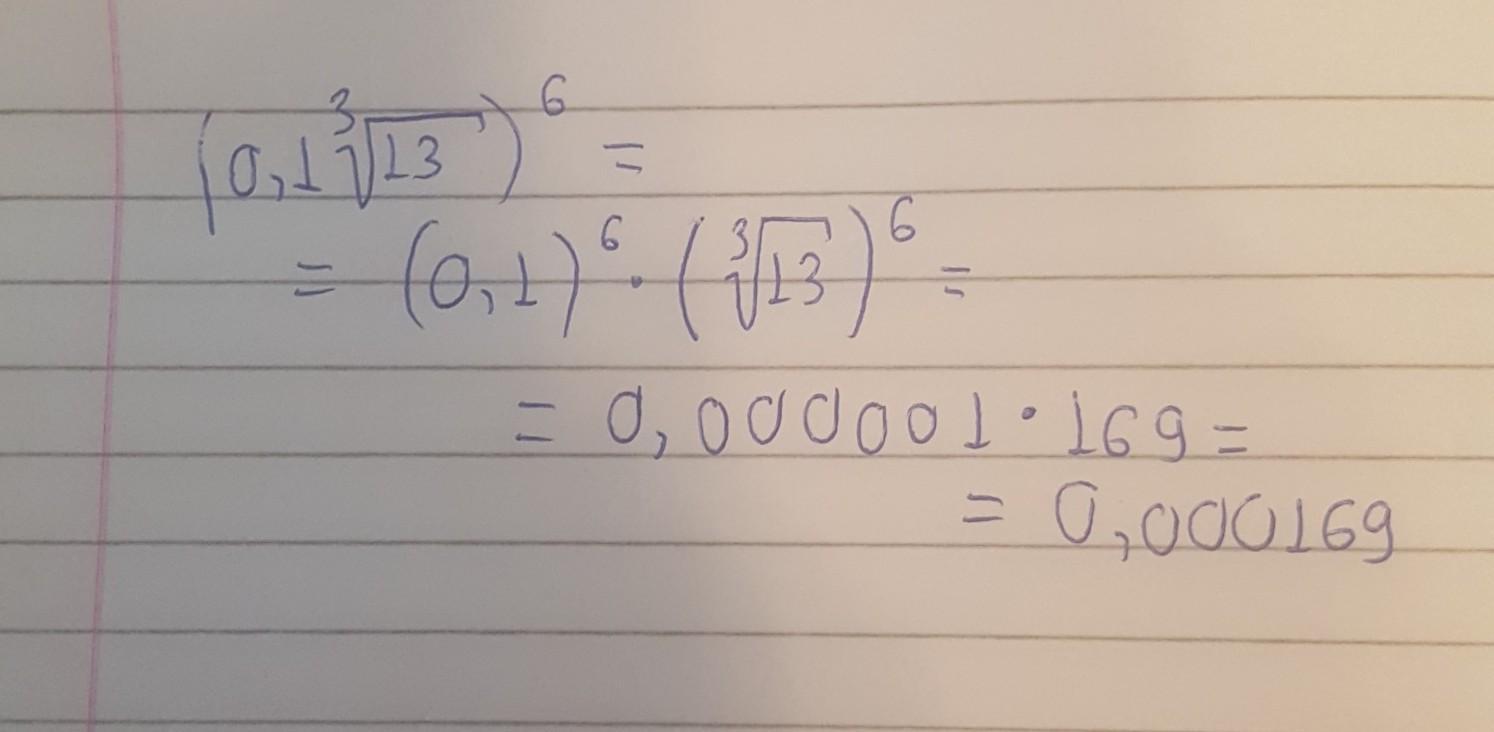 (0,1∛13)⁶ =
= (0,1)⁶ · (∛13)⁶ =
= 0,000001 · 169 =
= 0,000169